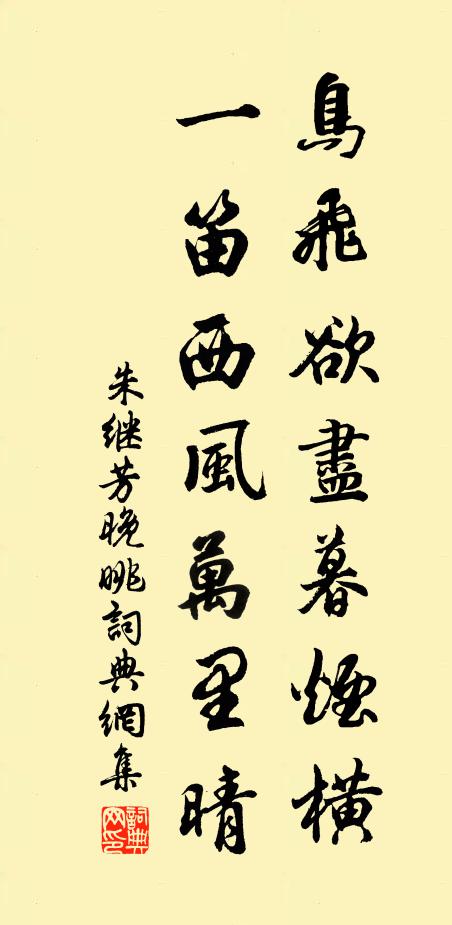 鳥飛欲盡暮煙橫
一笛西風萬里晴
朱继芳晚眺詞典網集
詞典網印